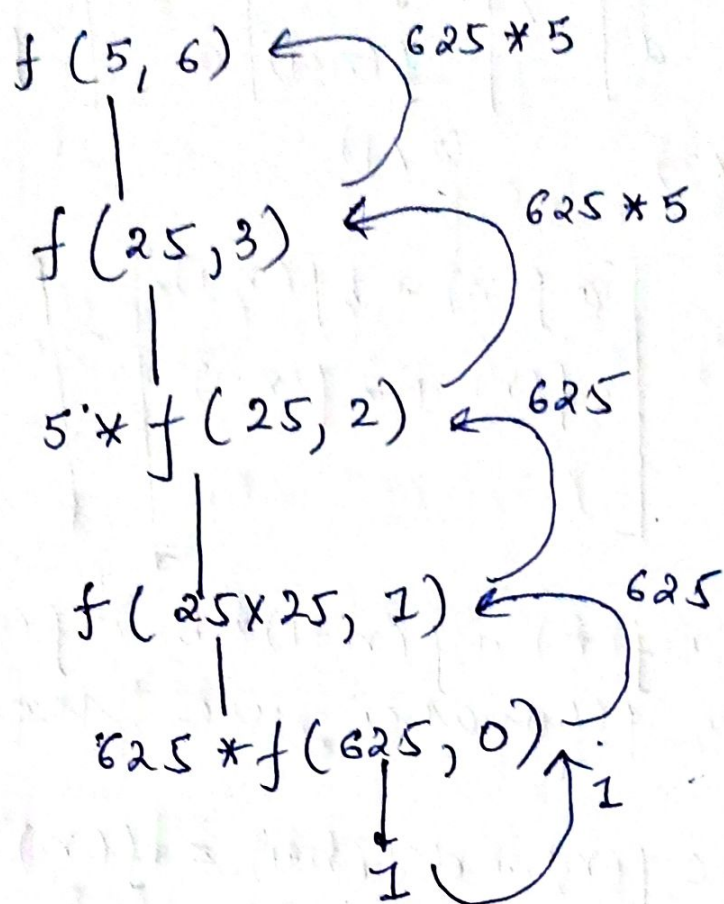 f (5, 6) 625 * 5
f (25, 3) 625 * 5
5 * f (25, 2) 625
f ( 25x25, 1) 625
625 * f (625, 0) 1
1